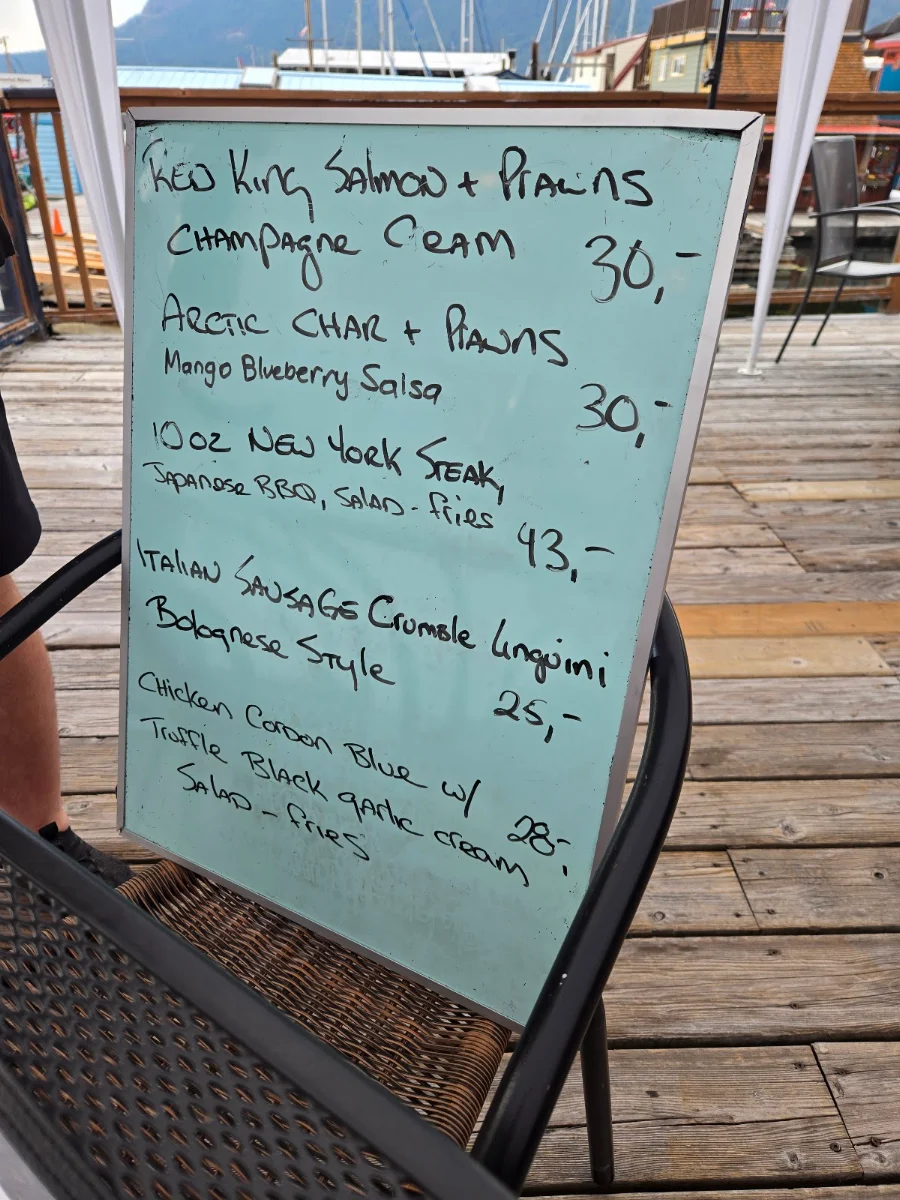 Red King Salmon + Prawns
Champagne Cream 30,-
Arctic Char + Prawns
Mango Blueberry Salsa
30,-
10 oz New York Steak,
Japanese BBQ, Salad - fries
43,-
Italian Sausage Crumble Linguini
Bolognese Style
25,-
Chicken Cordon Blue w/
Truffle Black garlic cream 28,-
Salad - fries